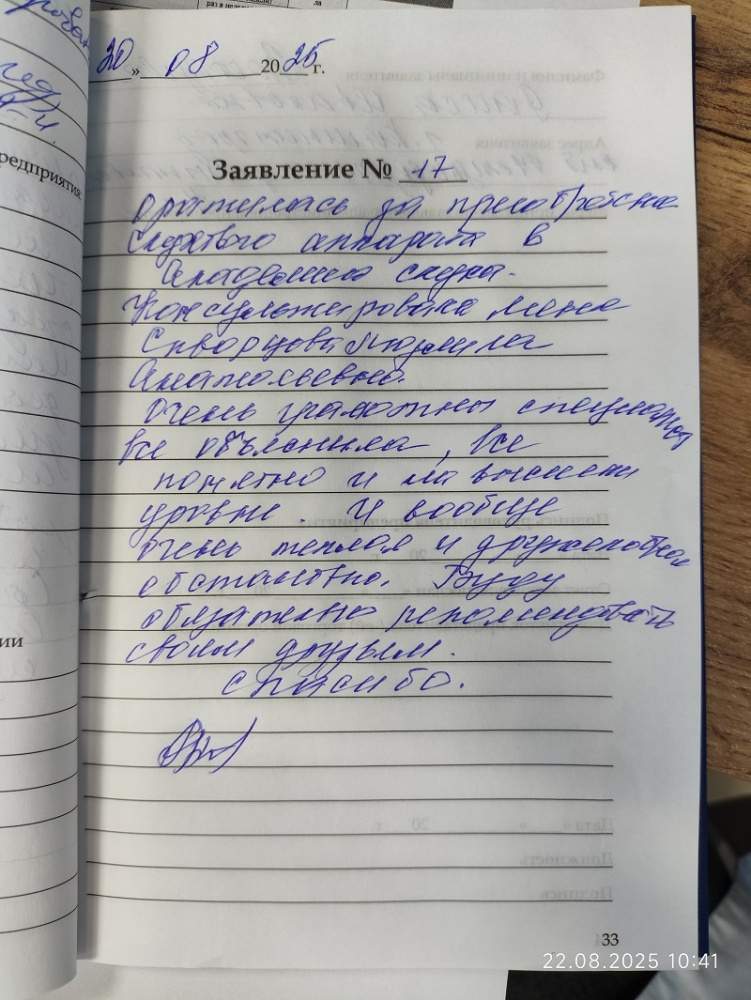 20 » 08 2025 г.
Заявление № 17
Оратилась за преобретение
слухового аппарата в
Академию слуха.
Консультировала меня
Скворцова Людмила
Анатольевна.
очень грамотный специалист
все объяснила, все
понятно и на высшем
уровне. И вообще
очень теплая и дружелюбная
обстановка. Буду
обязательно рекомендовать
своим друзьям.
спасибо.
33
22.08.2025 10:41
редприятия
ии